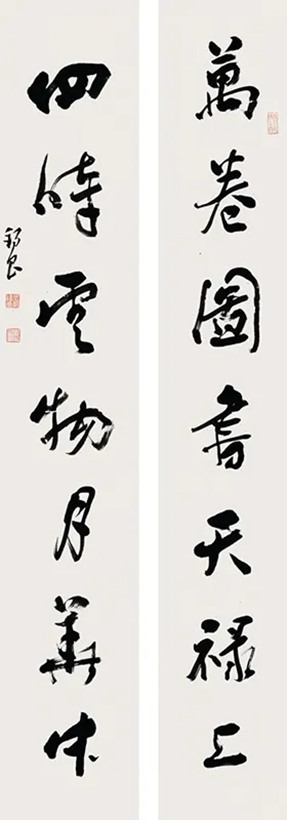 萬卷圖書天祿上
四時雲物月華中